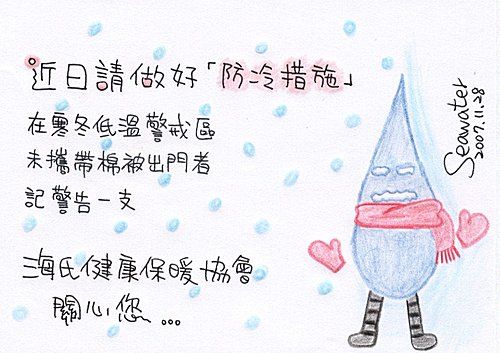 近日請做好「防冷措施」
在寒冬低溫警戒區
未攜帶棉被出門者
記警告一支
海氏健康保暖協會
關心您...
Seawater
2007.11.28